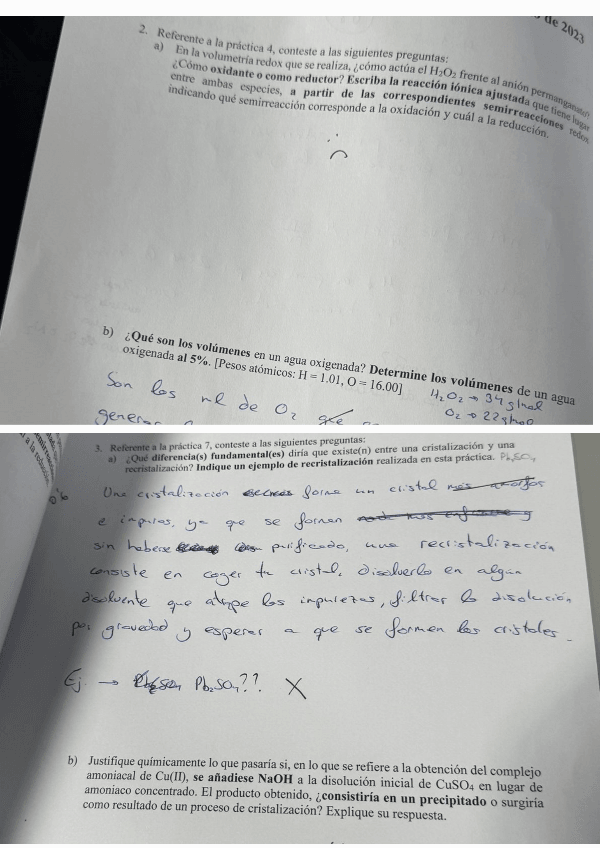 de 2023
2. Referente a la práctica 4, conteste a las siguientes preguntas:
a) En la volumetría redox que se realiza, ¿cómo actúa el H₂O₂ frente al anión permanganato?
¿Cómo oxidante o como reductor? Escriba la reacción iónica ajustada que tiene lugar
entre ambas especies, a partir de las correspondientes semirreacciones redox
indicando qué semirreacción corresponde a la oxidación y cuál a la reducción.
b) ¿Qué son los volúmenes en un agua oxigenada? Determine los volúmenes de un agua
oxigenada al 5%. [Pesos atómicos: H = 1.01, O = 16.00]
Son los ml de O₂ que
H₂O₂ → 34 g/mol
O₂ → 22 g/mol
3. Referente a la práctica 7, conteste a las siguientes preguntas:
a) ¿Qué diferencia(s) fundamental(es) diría que existe(n) entre una cristalización y una
recristalización? Indique un ejemplo de recristalización realizada en esta práctica. PbSO₄
Una cristalización forma un cristal más amorfos
e impuros, ya que se forman
sin haberse purificado, una recristalización
consiste en coger tu cristal, disolverlo en algún
disolvente que atrape las impurezas, filtrar la disolución
por gravedad y esperar a que se formen los cristales.
Ej. → Pb₂SO₄?? X
b) Justifique químicamente lo que pasaría si, en lo que se refiere a la obtención del complejo
amoniacal de Cu(II), se añadiese NaOH a la disolución inicial de CuSO₄ en lugar de
amoniaco concentrado. El producto obtenido, ¿consistiría en un precipitado o surgiría
como resultado de un proceso de cristalización? Explique su respuesta.